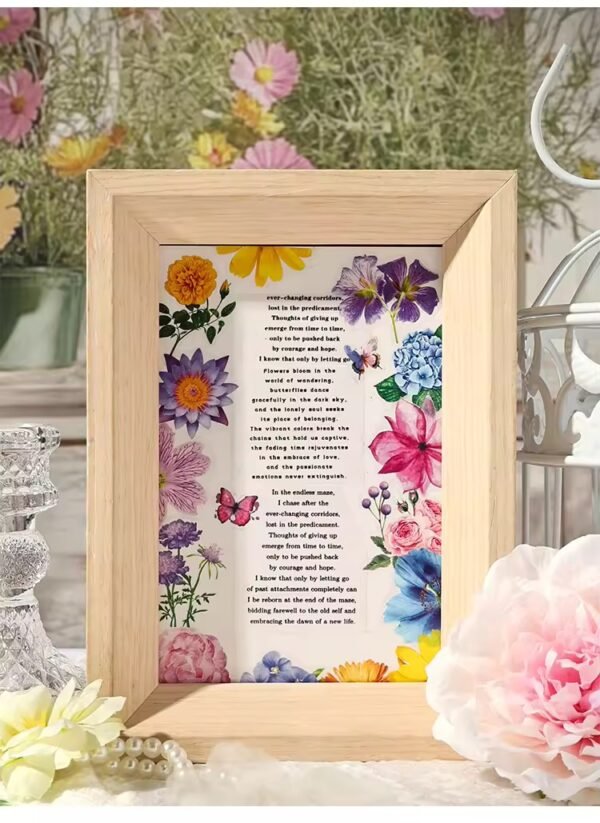 ever-changing corridors,
lost in the predicament.
Thoughts of giving up
emerge from time to time,
only to be pushed back
by courage and hope.
I know that only by letting go
Flowers bloom in the
world of wondering,
butterflies dance
gracefully in the dark sky,
and the lonely soul seeks
its place of belonging.
The vibrant colors break the
chains that hold us captive,
the fading time rejuvenates
in the embrace of love,
and the passionate
emotions never extinguish.
In the endless maze,
I chase after the
ever-changing corridors,
lost in the predicament.
Thoughts of giving up
emerge from time to time,
only to be pushed back
by courage and hope.
I know that only by letting go
of past attachments completely can
I be reborn at the end of the maze,
bidding farewell to the old self and
embracing the dawn of a new life.